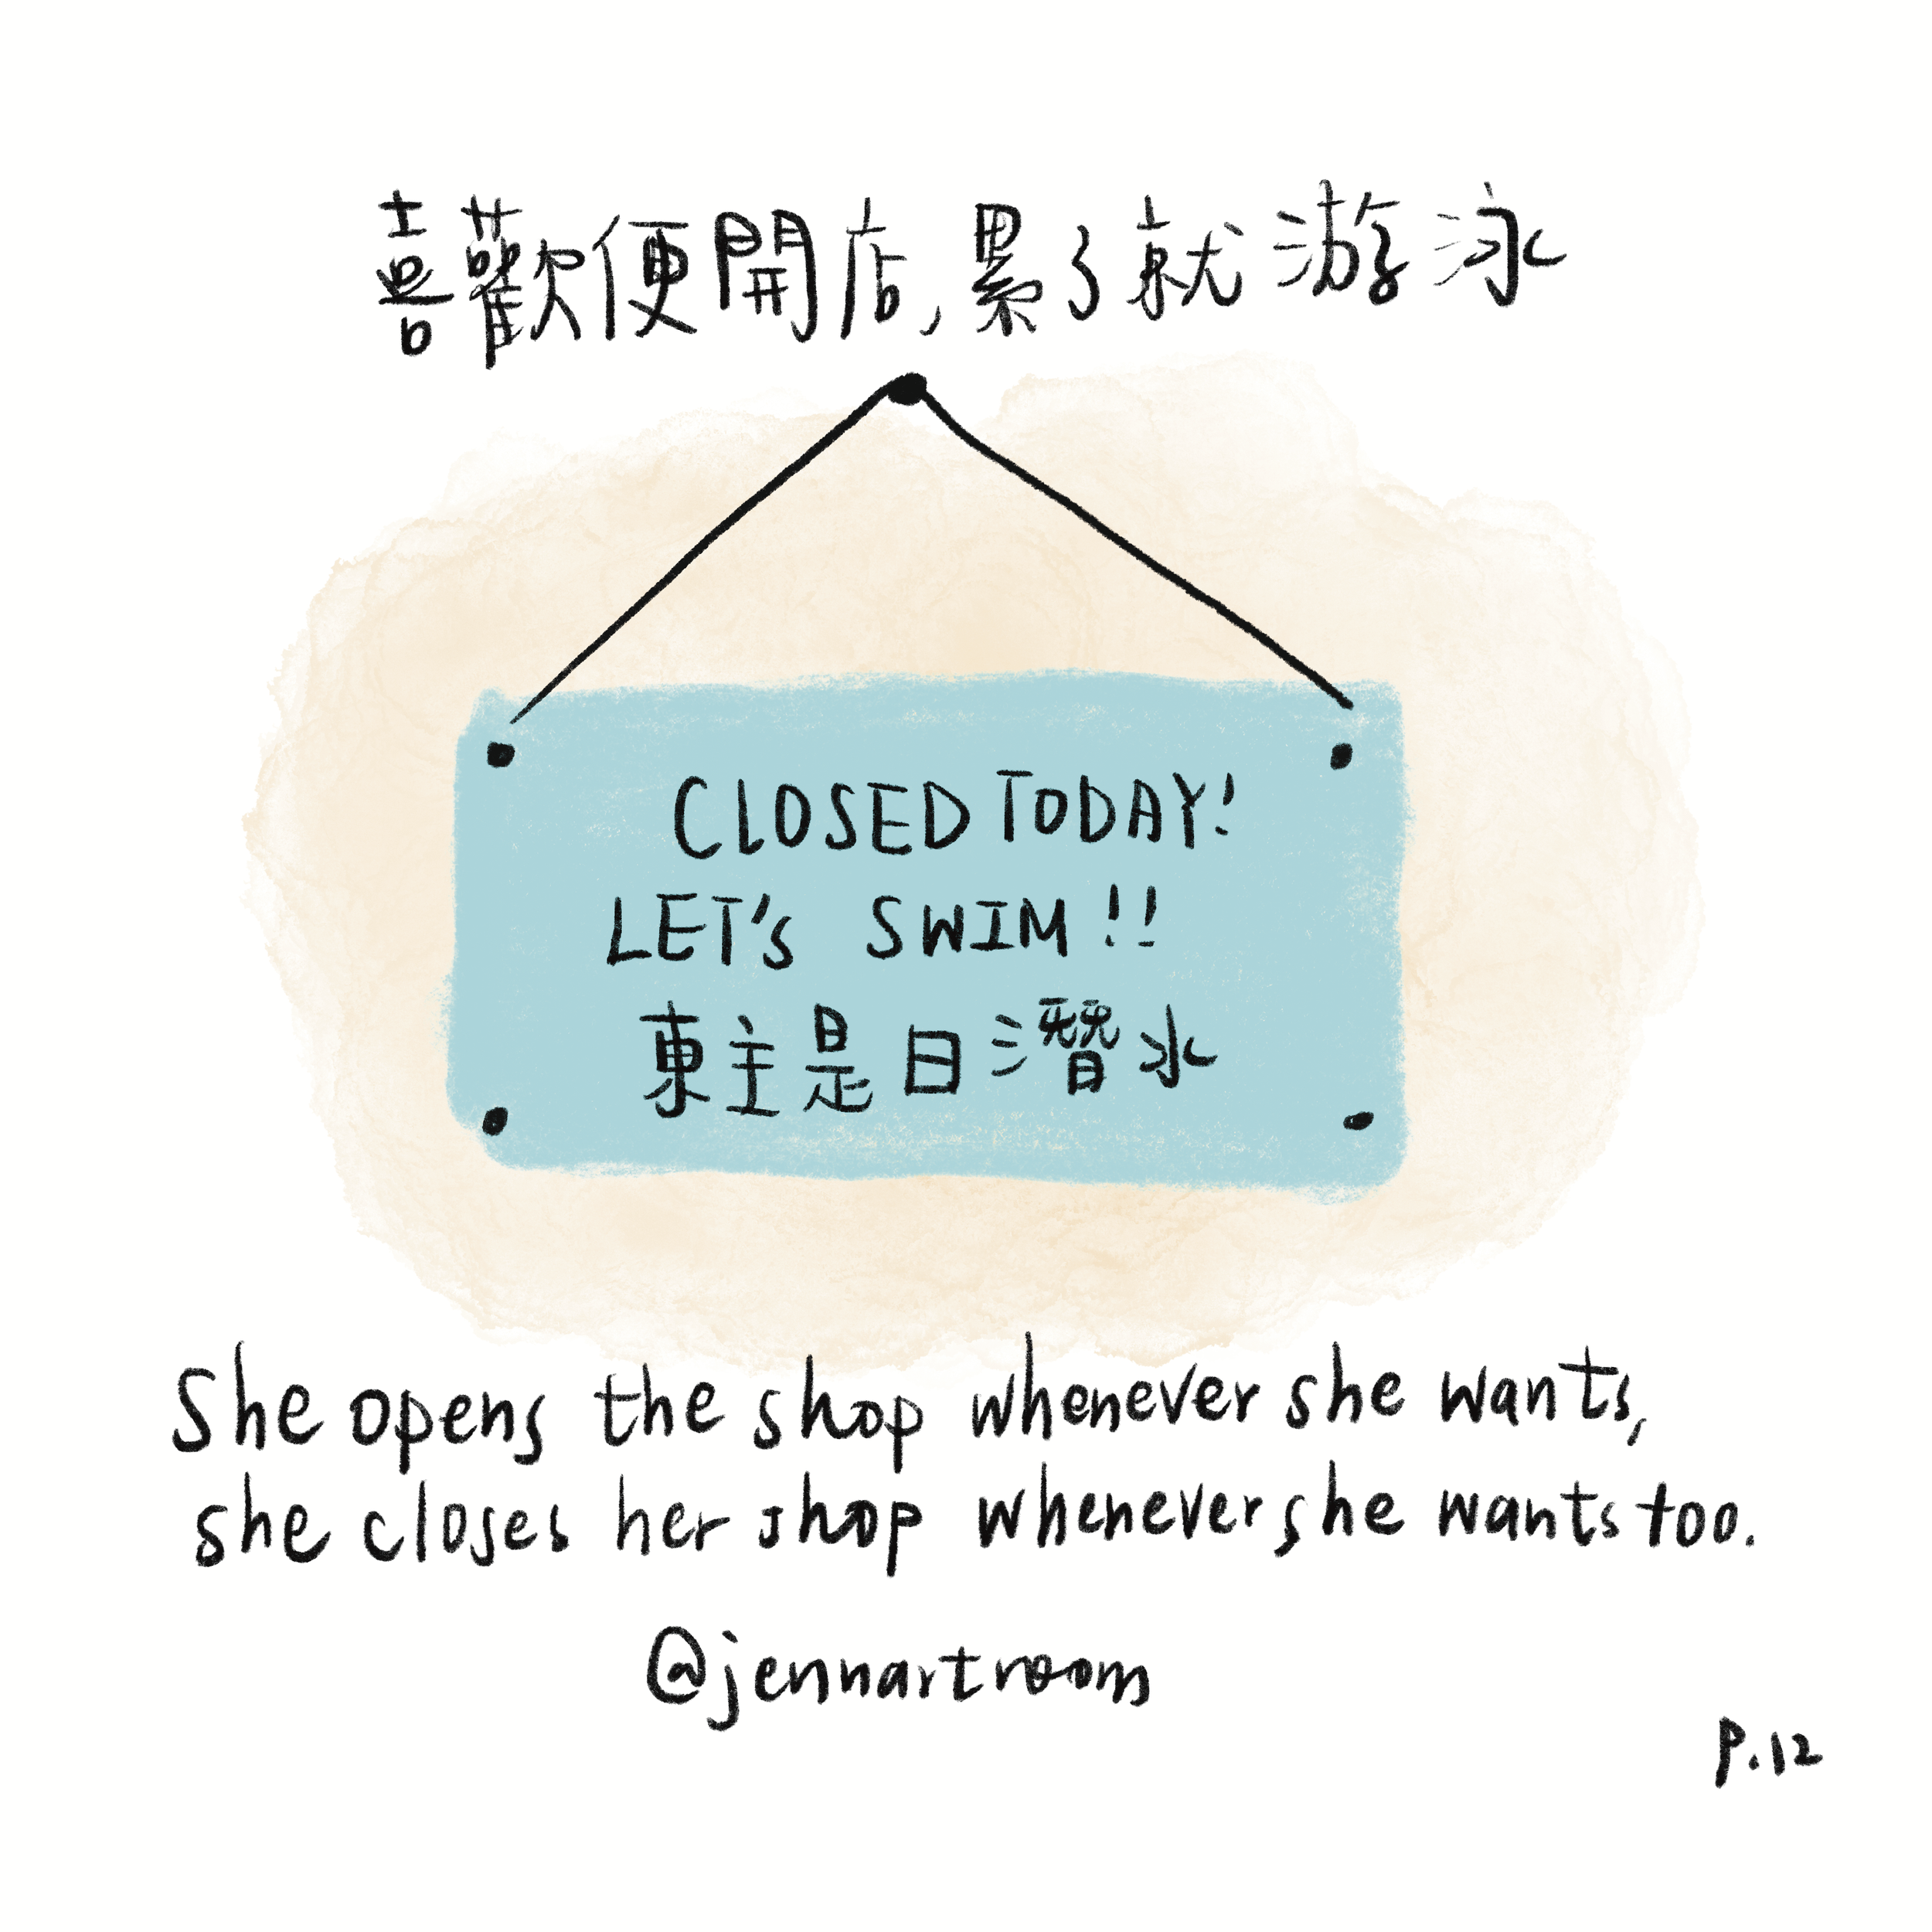 喜歡便開店,累了就游泳
CLOSED TODAY!
LET'S SWIM!!
東主是日潛水
She opens the shop whenever she wants,
she closes her shop whenever she wants too.
@jennartroom
P.12